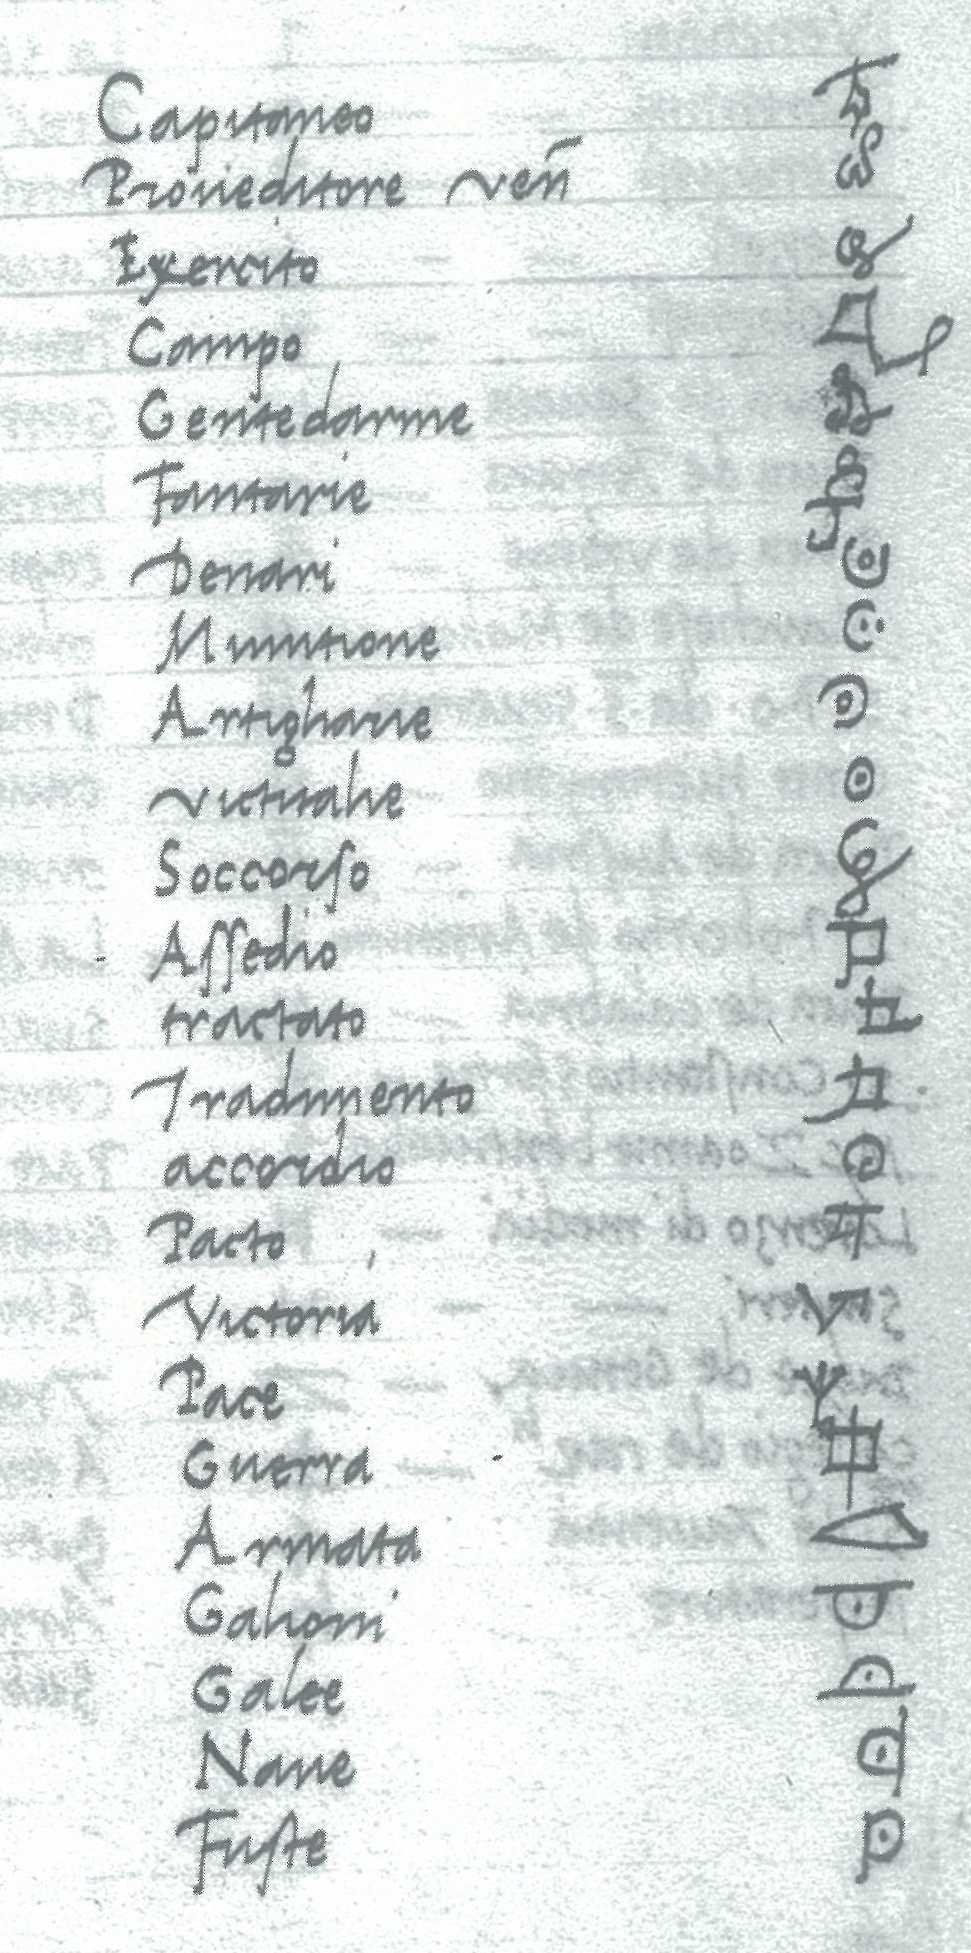 Capitaneo
Proveditore veñ
Exercito
Campo
Gentedarme
Fantarie
Denari
Munitione
Artigliarie
victualie
Soccorso
Assedio
tractato
Tradimento
accordio
Pacto
Victoria
Pace
Guerra
Armata
Galioni
Galee
Naue
Fuste